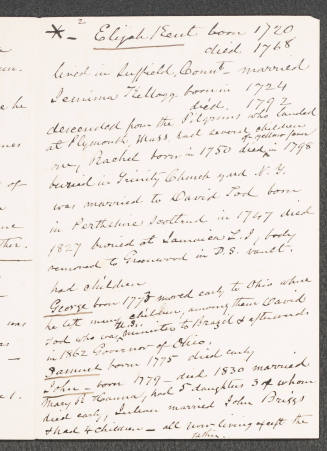 2
* - Elijah Kent born 1720
died 1768
lived in Suffield, Connt - married
Jemima Kellogg born in 1724
died. 1792
descended from the Pilgrims who landed
at Plymouth, Mass had several children
of yellow fever
one, Rachel born in 1750 died in 1798
buried in Trinity Church yard N.Y.
was married to David Tod born
in Perthshire Scotland in 1747 died
1827 buried at Jamaica L.I., body
removed to Greenwood in D.S. vault.
had children
George born 1773 moved early to Ohio where
he left many children, among them David
U.S.
Tod who was minister to Brazil & afterward.
in 1862 Governor of Ohio.
Samuel born 1775 died early
John - born 1779 - died 1830 married
Mary R. Hanna, had 5 daughters 3 of whom
died early, married John Briggs
& had 4 children - all now living except the
father.